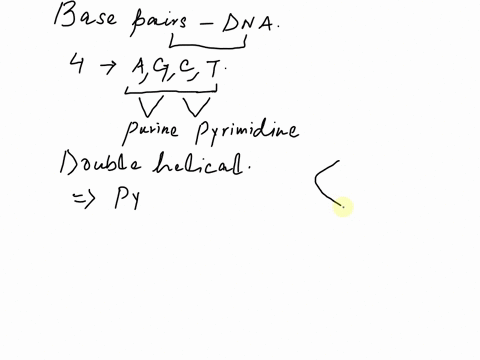 Base pairs - DNA.
4 → A, G, C, T.
purine pyrimidine
Double helical.
⇒ Py